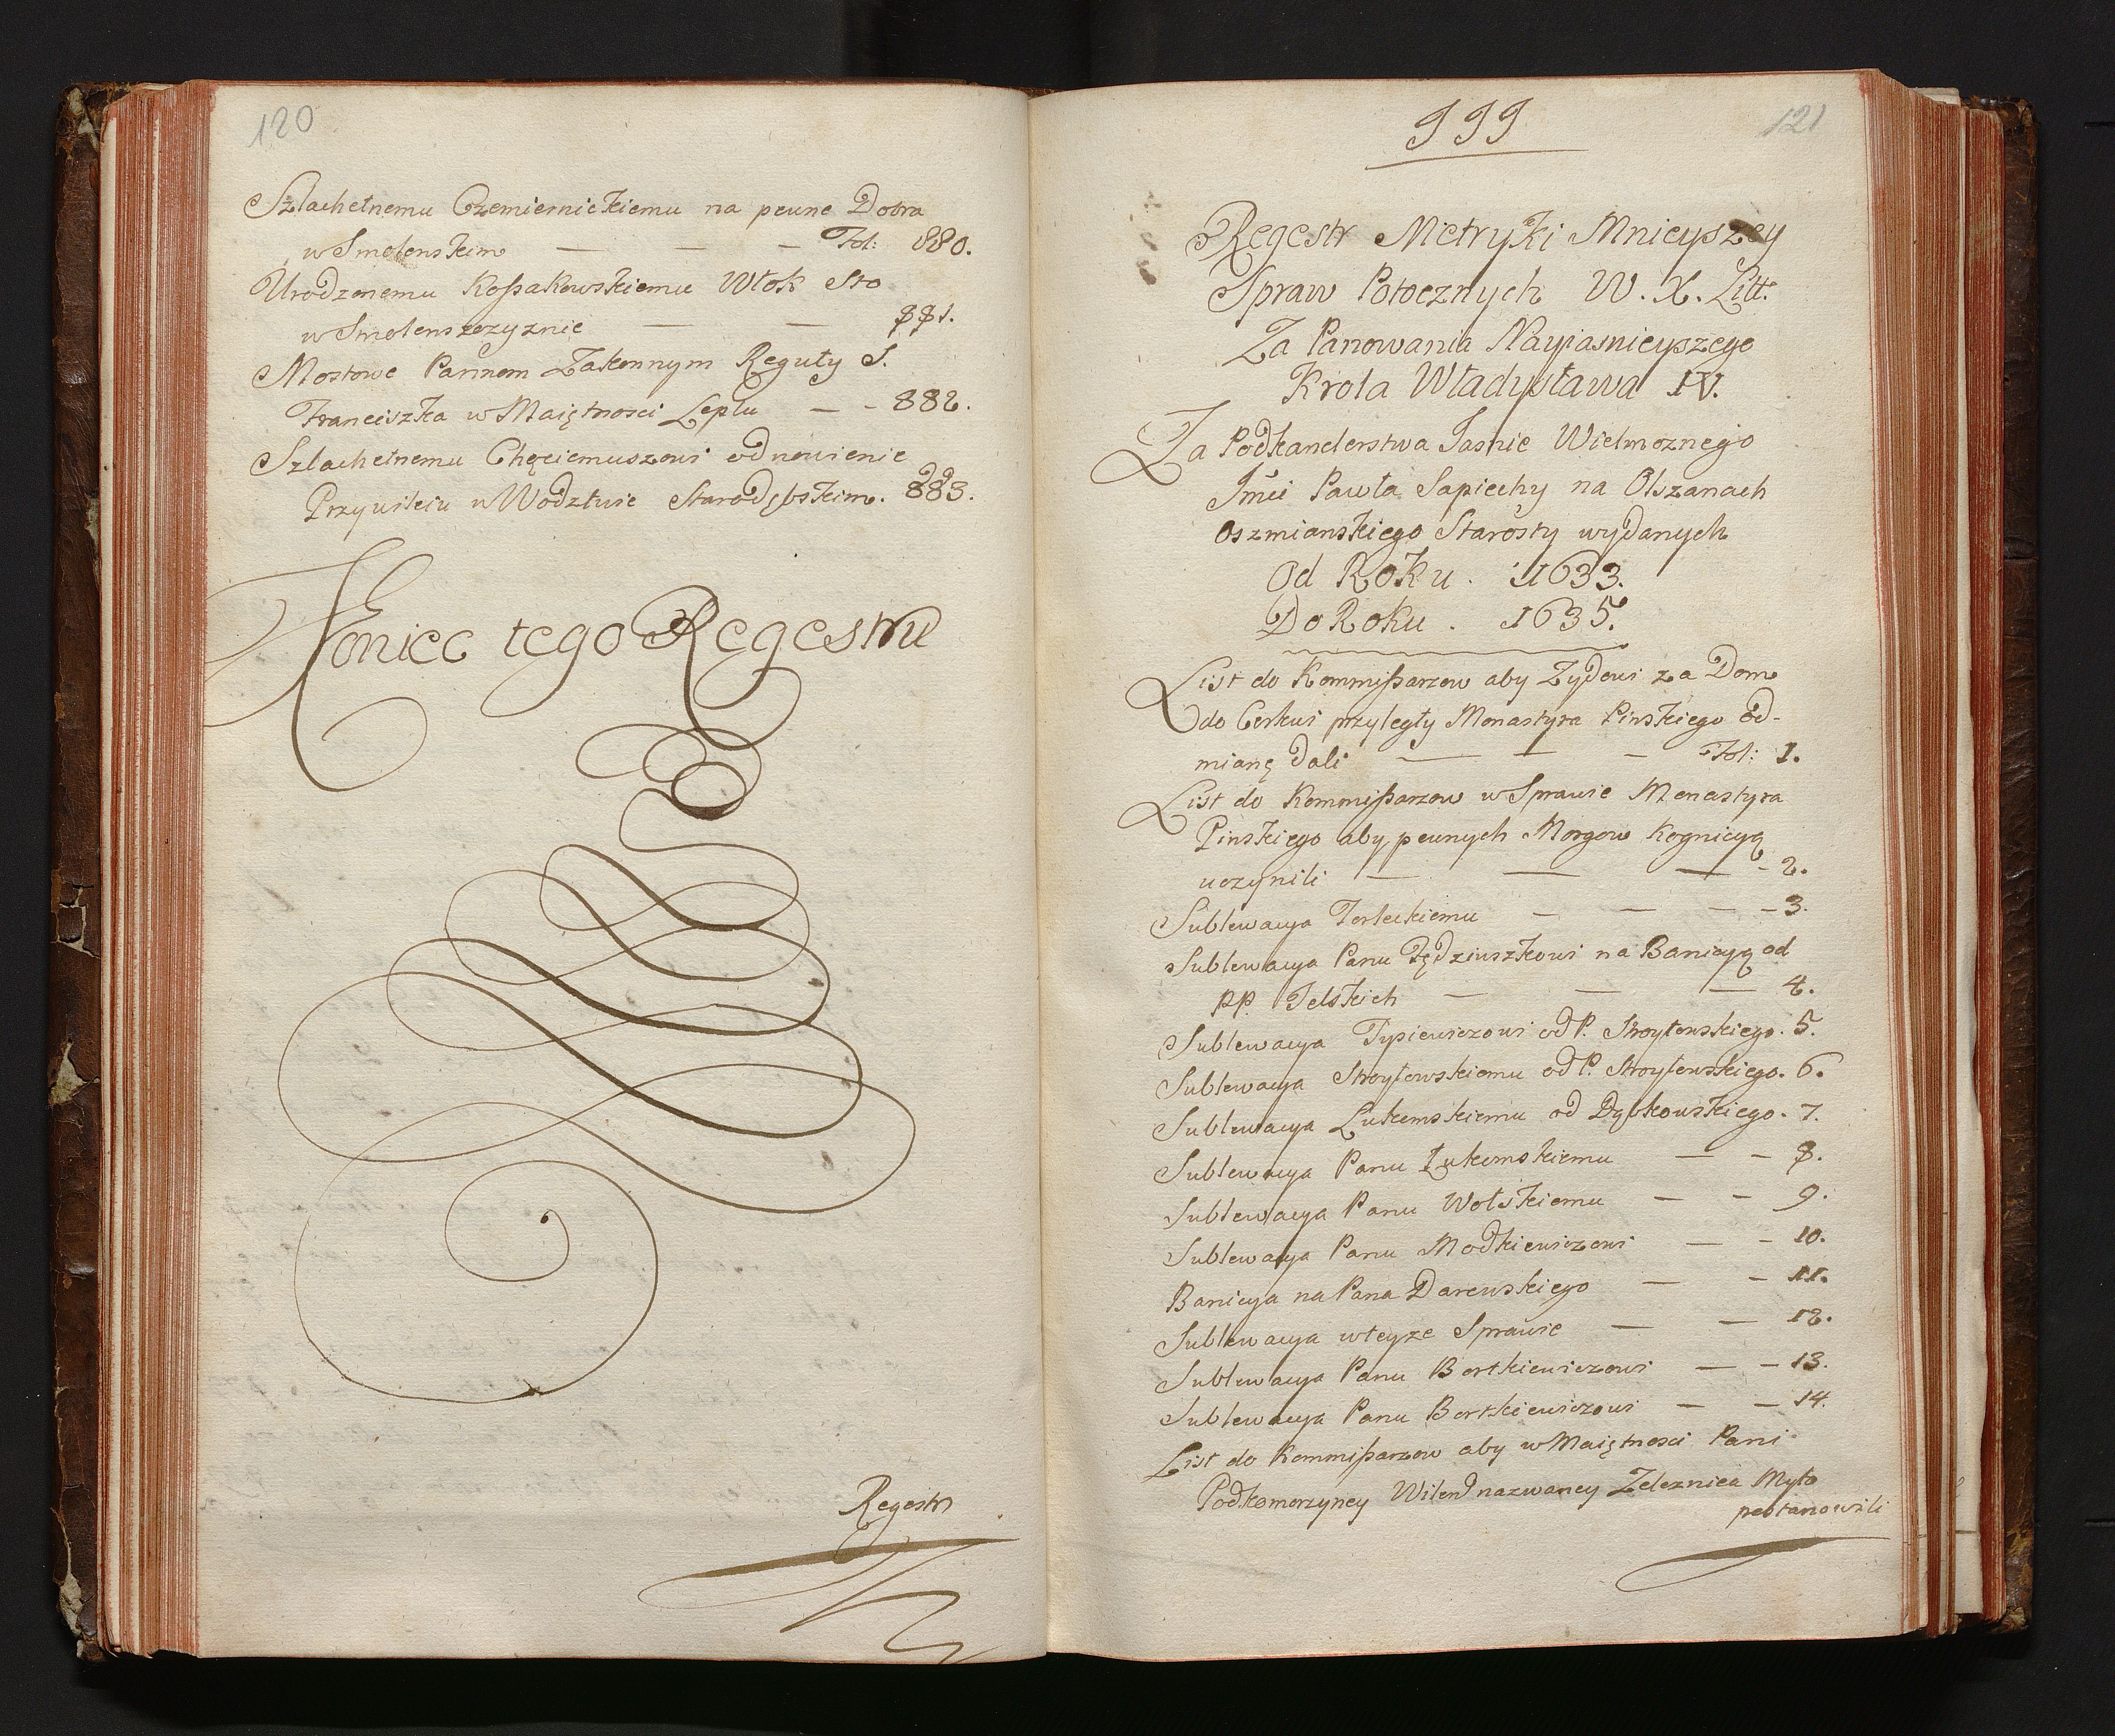 120
Szlachetnemu Czemiernickiemu na pewne Dobra
w Smolenskim — — — Fol: 880.
Urodzonemu Koßakowskiemu Włok Sto
w Smolenszczyznie — — 881.
Mostowe Pannom Zakonnym Reguły S.
Franciszka w Maiętnosci Leplu — - 882.
Szlachetnemu Chęciemuszowi odnowienie
Przywileiu w Wodztwie Starodębskim. 883.
Koniec tego Regestru
Regestr
999
121
Regestr Metryki Mnieyszey
Spraw Potocznych W. X. Litt.
Za Panowania Nayiasnieyszego
Krola Władysława IV.
Za Podkanclerstwa Jasnie Wielmoznego
Jmci Pawła Sapiehy na Olszanach
Oszmianskiego Starosty wydanych
Od Roku. 1633.
Do Roku. 1635.
List do Kommißarzow aby Zydowi za Dom
do Cerkwi przyległy Monastyra Pinskiego od-
mianę dali — — — Fol: 1.
List do Kommißarzow w Sprawie Monastyra
Pinskiego aby pewnych Morgow Kognicyą
uczynili — — — - 2.
Sublewacya Terleckiemu — — — - 3.
Sublewacya Panu Jędziuszkowi na Banicyą od
PP. Jelskich — — — 4.
Sublewacya Typiewiczowi od P. Stroytowskiego. 5.
Sublewacya Stroytowskiemu od P. Stroytowskiego. 6.
Sublewacya Lukomskiemu od Dąbkowskiego. 7.
Sublewacya Panu Łukomskiemu — - 8.
Sublewacya Panu Wolskiemu — - 9.
Sublewacya Panu Modkiewiczowi — - 10.
Banicya na Pana Darewskiego — - 11.
Sublewacya w teyze Sprawie — — 12.
Sublewacya Panu Bortkiewiczowi — - 13.
Sublewacya Panu Bortkiewiczowi — - 14.
List do Kommißarzow aby w Maiętnosci Pani
Podkomorzyney Wilen nazwaney Zeleznica Myto
postanowili